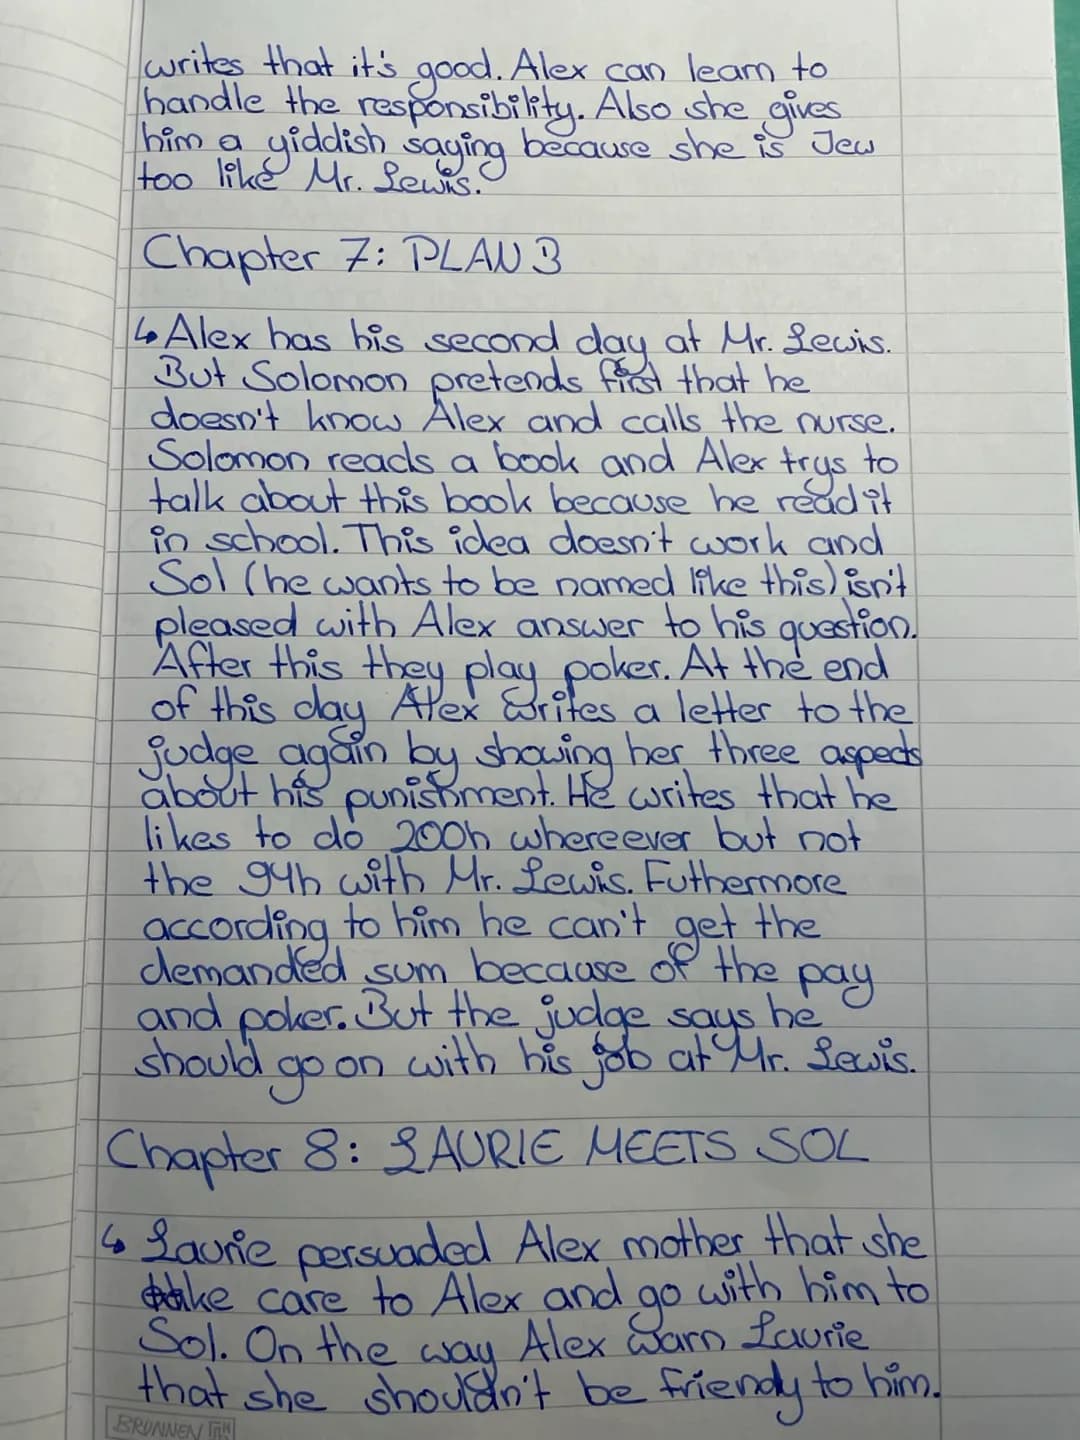 writes that it's good. Alex can learn to
handle the responsibility. Also she gives
him a yiddish saying because she is Jew
too like Mr. Lewis.
Chapter 7: PLAN B
↳ Alex has his second day at Mr. Lewis.
But Solomon pretends first that he
doesn't know Alex and calls the nurse.
Solomon reads a book and Alex trys to
talk about this book because he read it
in school. This idea doesn't work and
Sol (he wants to be named like this) isn't
pleased with Alex answer to his question.
After this they play poker. At the end
of this day Alex writes a letter to the
judge again by showing her three aspects
about his punishment. He writes that he
likes to do 200h whereever but not
the 94h with Mr. Lewis. Futhermore
according to him he can't get the
demanded sum because of the pay
and poker. But the judge says he
should go on with his job at Mr. Lewis.
Chapter 8: LAURIE MEETS SOL
↳ Laurie persuaded Alex mother that she
take care to Alex and go with him to
Sol. On the way Alex warn Laurie
that she shouldn't be friendy to him.
BRUNNEN